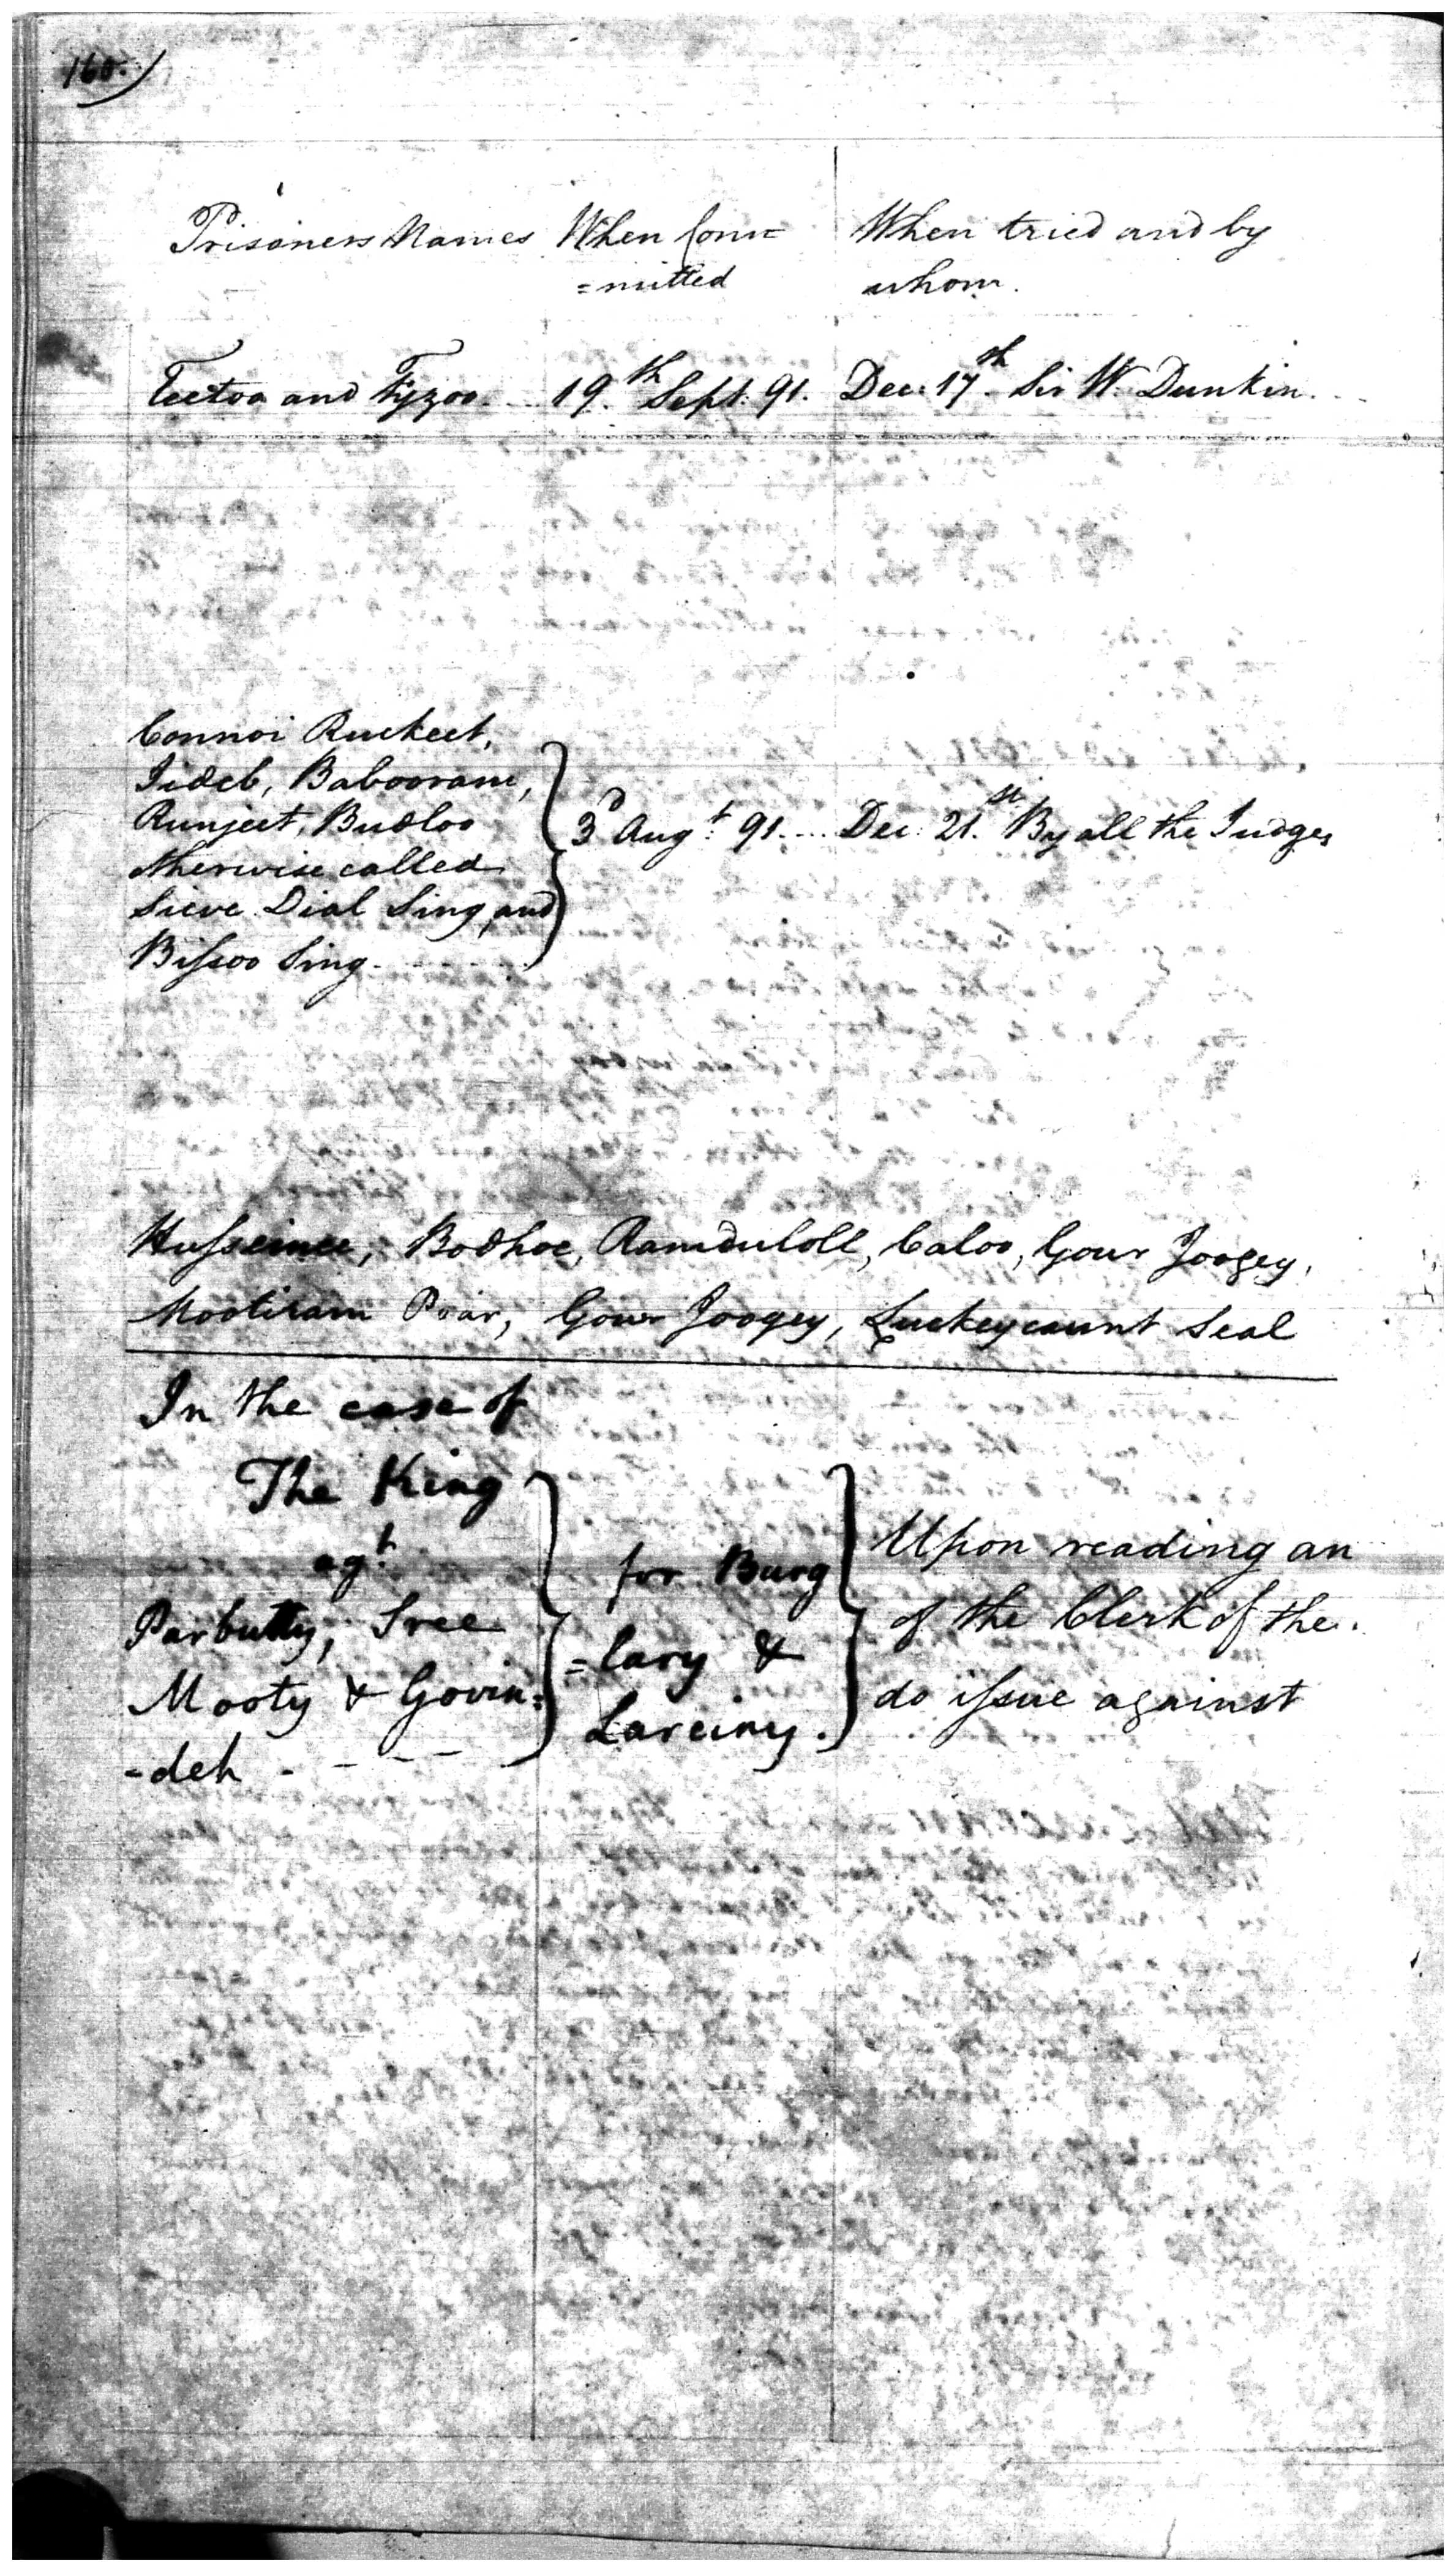 160.
Prisoners Names When Com=
=mitted
When tried and by
whom.
Teetoo and Fyzoo 19.th Sept: 91. Dec: 17th Sir W. Dunkin.
Connoi Ruckeet,
Jideb, Babooram,
Runjeet, Budloo
otherwise called
Sieve Dial Sing, and
Bissoo Sing
3d Augt: 91.... Dec: 21.st By all the Judges
Husseinee, Bodhoe, Ramduloll, Caloo, Gour Joogey,
Mootiram Poar, Gour Joogey, Luckeycaunt Seal
In the case of
The King
agt:
Parbutty, Sree
Mooty & Govin=
-deh - - - -
for Burg
=lary &
Larciny.
Upon reading an
of the Clerk of the
do issue against